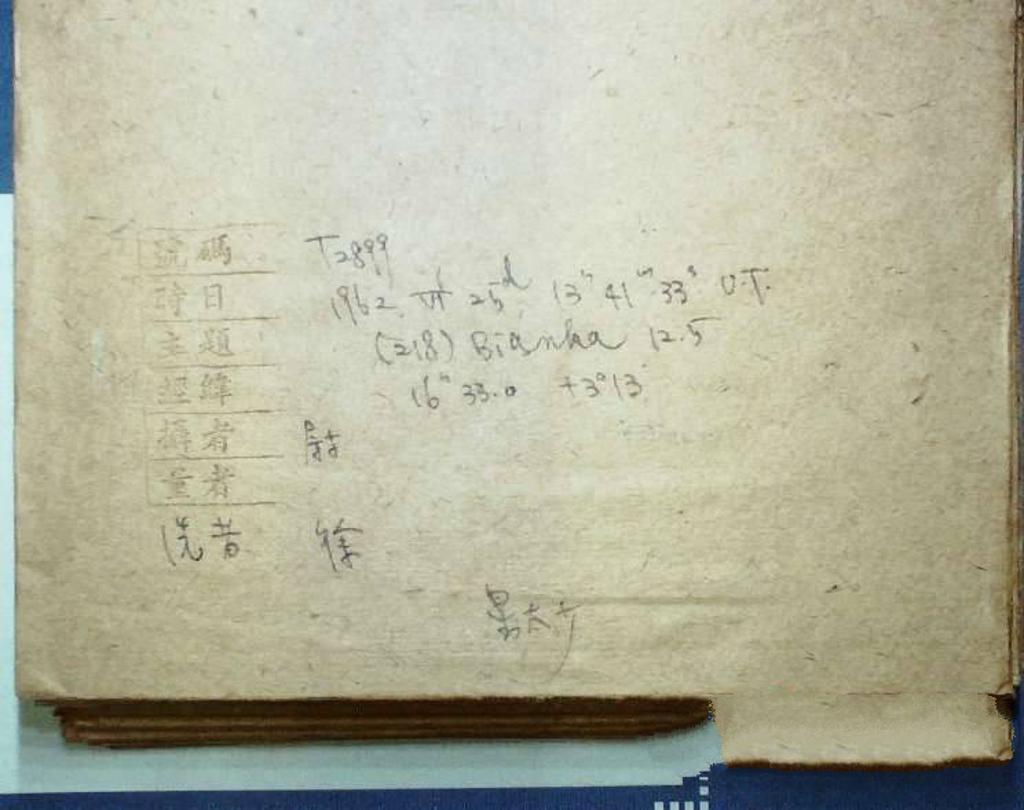 號碼 T2899
時日 1962 VI 25d 13h 41m 33s U.T.
主題 (218) Bianka 12.5
經緯 16h 33.0 +3°13'
攝者
量者
洗者 徐